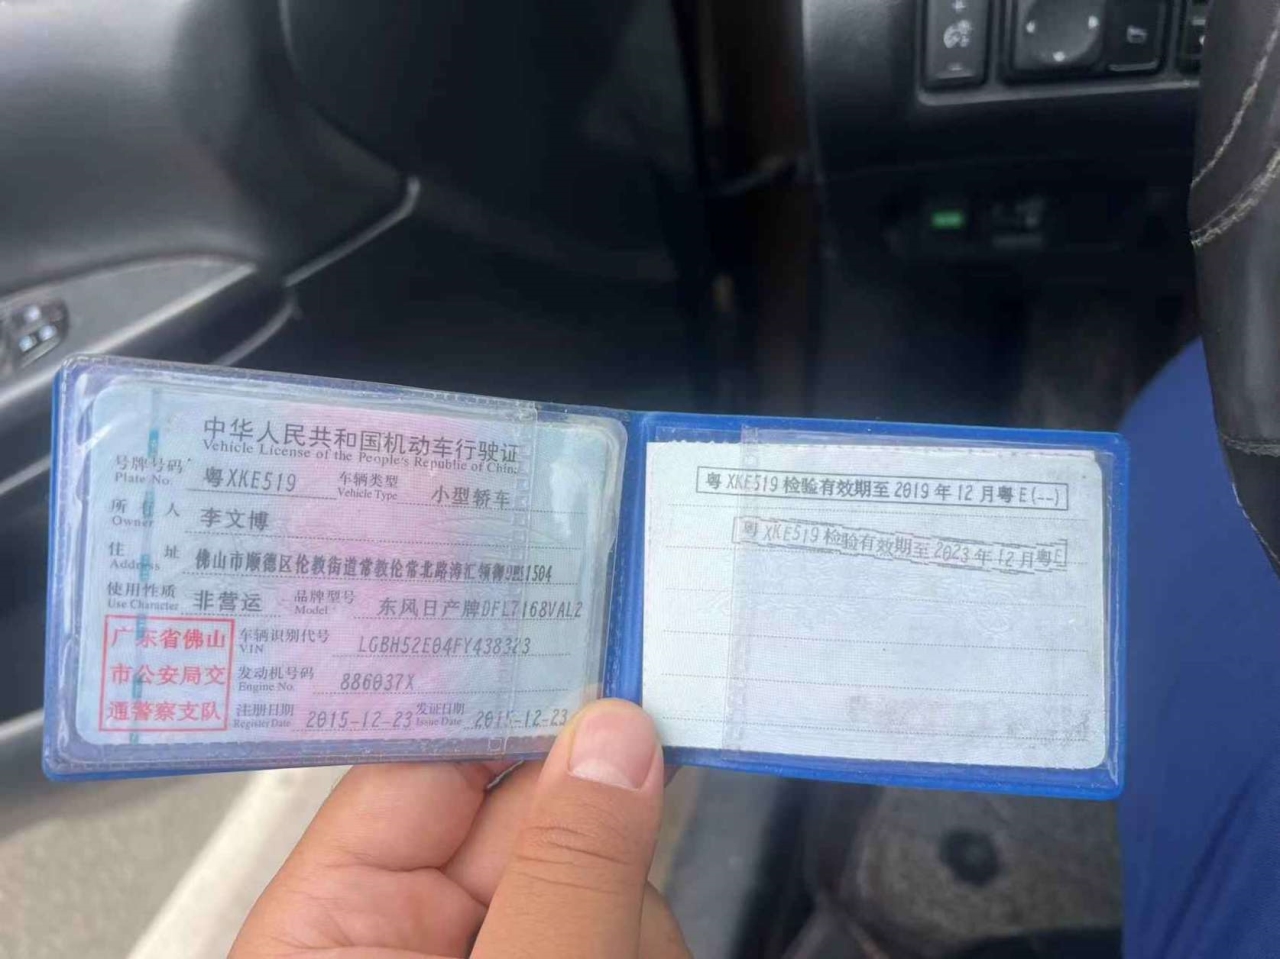 中华人民共和国机动车行驶证
Vehicle License of the People's Republic of China
号牌号码 粤XKE519 车辆类型 小型轿车
Plate No. Vehicle Type
所有人 李文博
Owner
住址 佛山市顺德区伦教街道常教伦常北路涛汇领御 1504
Address
使用性质 非营运 品牌型号 东风日产牌DFL7168VAL2
Use Character Model
广东省佛山
市公安局交
通警察支队
车辆识别代号 LGBH52E04FY438323
VIN
发动机号码 886037X
Engine No.
注册日期 2015-12-23 发证日期 2015-12-23
Register Date Issue Date
粤XKE519检验有效期至2019年12月粤E(--)
粤XKE519检验有效期至2023年12月粤E